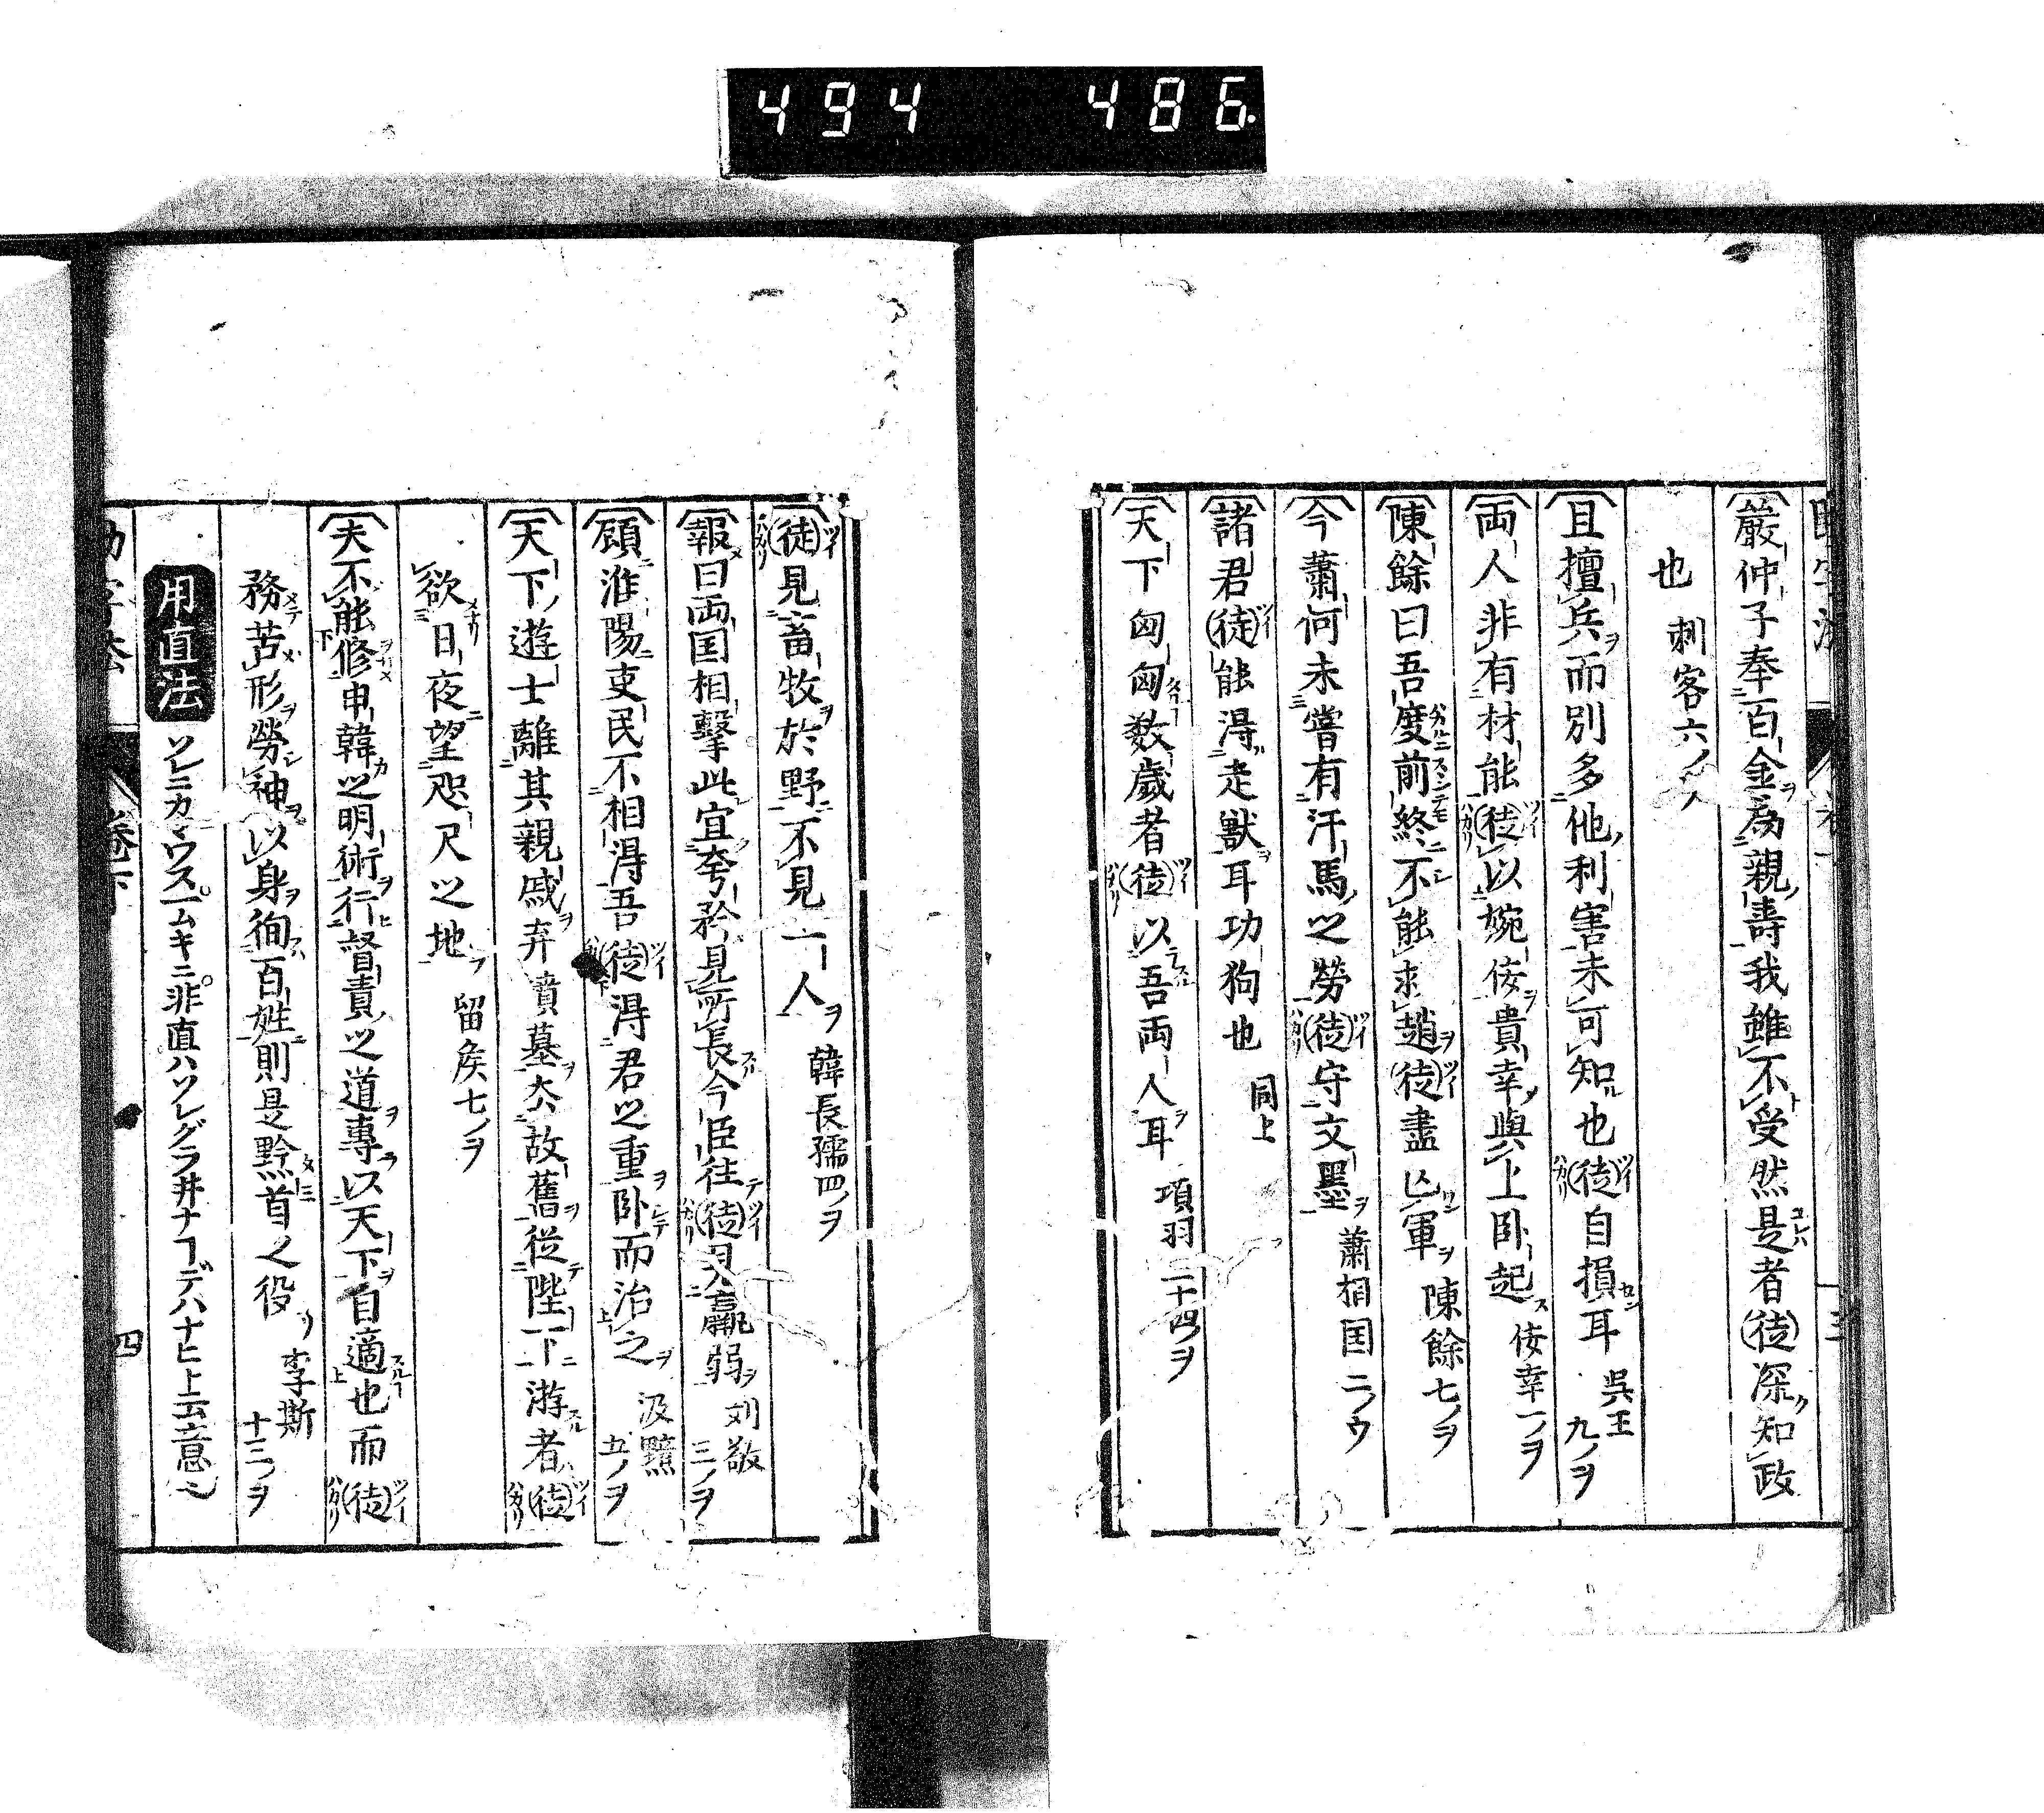 494 486
嚴仲子奉百金為親壽我雖不受然是者徒深知政
也 刺客六ノ
且擅兵而別多他利害未可知也徒自損耳 呉王九ノヲ
両人非有材能徒以婉佞貴幸與上卧起 佞幸一ノヲ
陳餘曰吾度前終不能求趙徒盡亾軍 陳餘七ノヲ
今蕭何未嘗有汗馬之勞徒守文墨 蕭相国二ノウ
諸君徒能得走獣耳功狗也 同上
天下匈匈数歳者徒以吾両人耳 項羽二十四ノヲ
徒見畜牧於野不見一人 韓長孺四ノヲ
報曰両国相擊此宜夸矜見所長今臣往徒見羸弱 刘敬三ノヲ
顧淮陽吏民不相得吾徒得君之重卧而治之 汲黯五ノヲ
天下遊士離其親戚弃墳墓去故舊從陛下游者徒
欲日夜望咫尺之地 留矦七ノヲ
夫不能修申韓之明術行督責之道專以天下自適也而徒
務苦形勞神以身徇百姓則是黔首之役 李斯十三ノヲ
用直法 ソレニカマウス一ムキニ非直ハソレグラ井ナコデハナヒト云意也
卷下
四